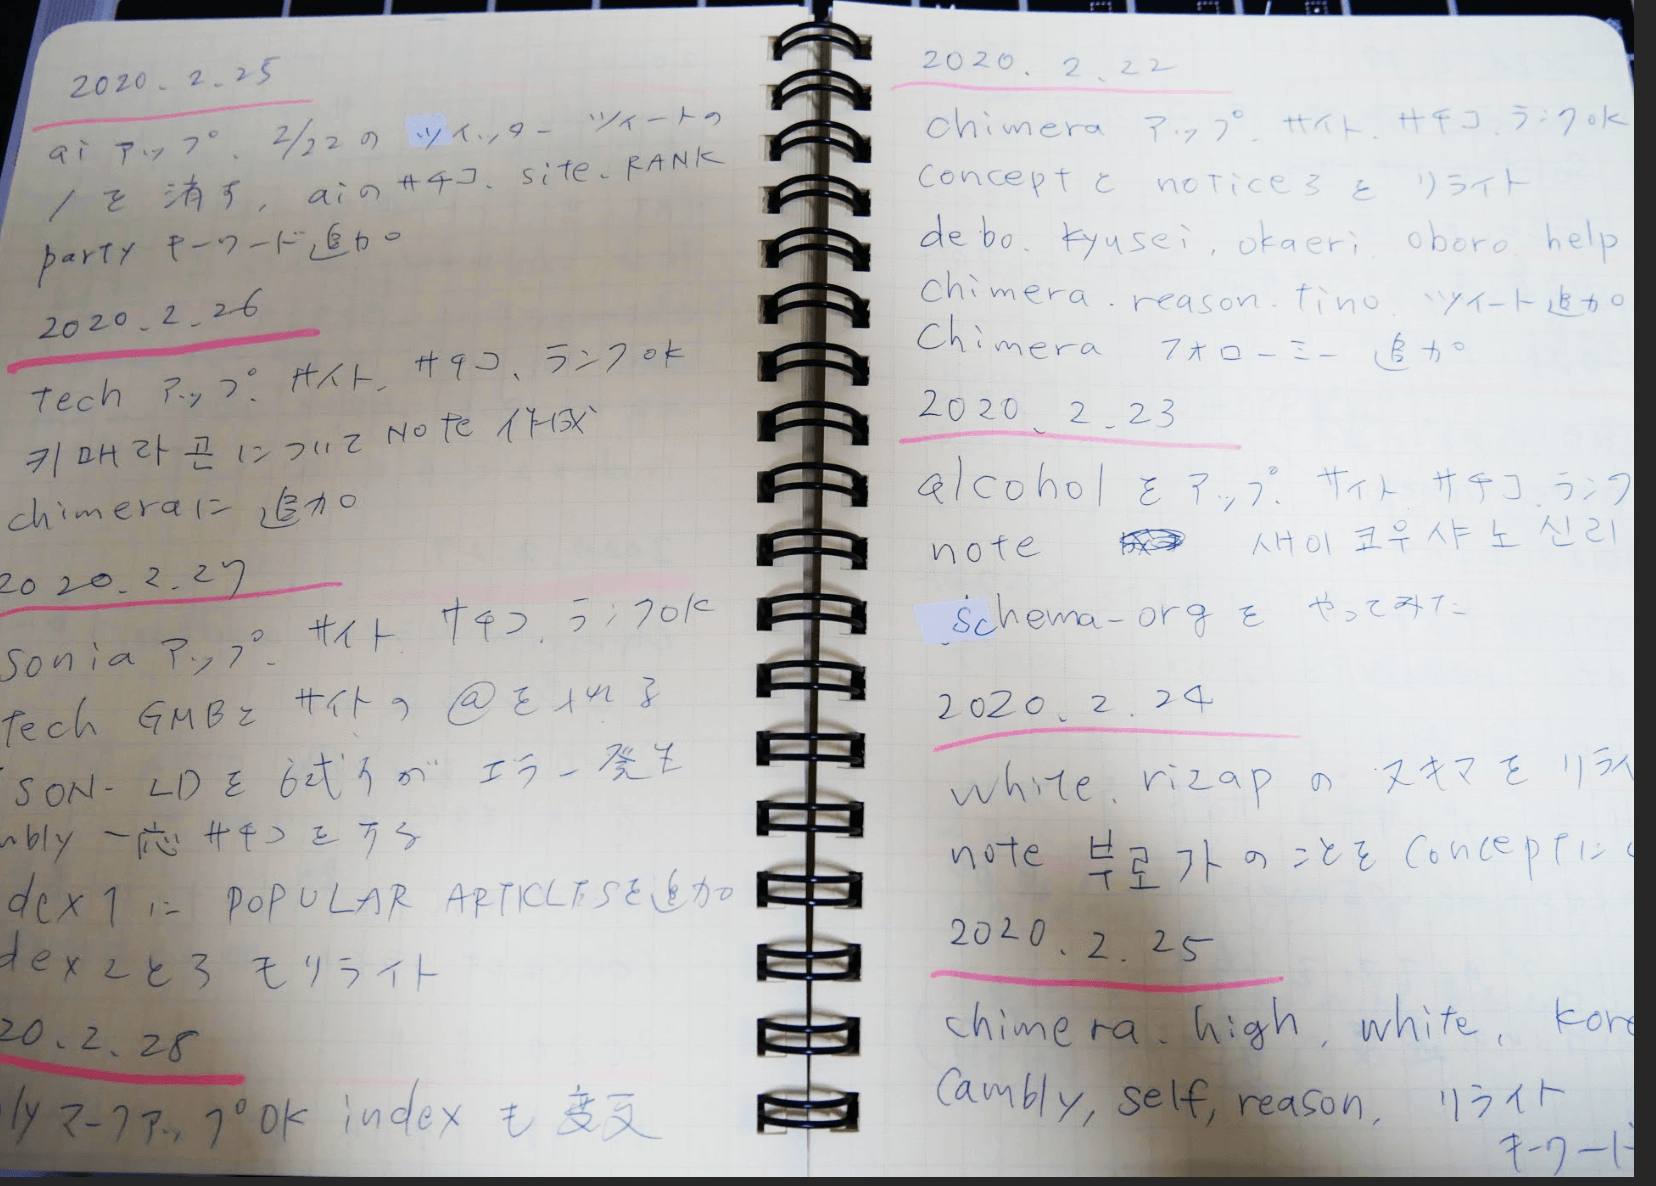 2020.2.25
ai アップ、2/22の ツイッター ツイートの
/を 消す、aiの サチコ、site、RANK
party キーワード追加
2020.2.26
tech アップ、サイト、サチコ、ランクOK
키매라곤について Note 作成
chimeraに 追加
2020.2.27
sonia アップ、サイト サチコ、ランクOK
tech GMBと サイトの @を入れる
SON-LDを 試すが エラー発生
mbly 一応 サチコを する
dex1に POPULAR ARTICLESを追加
dex2と3 もリライト
20.2.28
ly マークアップOK index も 変更
2020.2.22
chimera アップ、サイト、サチコ、ランクOK
concept と notice3を リライト
debo、kyusei, okaeri oboro help
chimera.reason.tino ツイート追加
Chimera フォローミー 追加
2020.2.23
alcohol を アップ、サイト サチコ、ランク
note 새이코우샤노신리
schema-orgを やってみた
2020.2.24
white、rizapの スキマを リライ
note 부로가のことを conceptに
2020.2.25
chimera、high, white, kore
Cambly, self, reason, リライト
キーワード